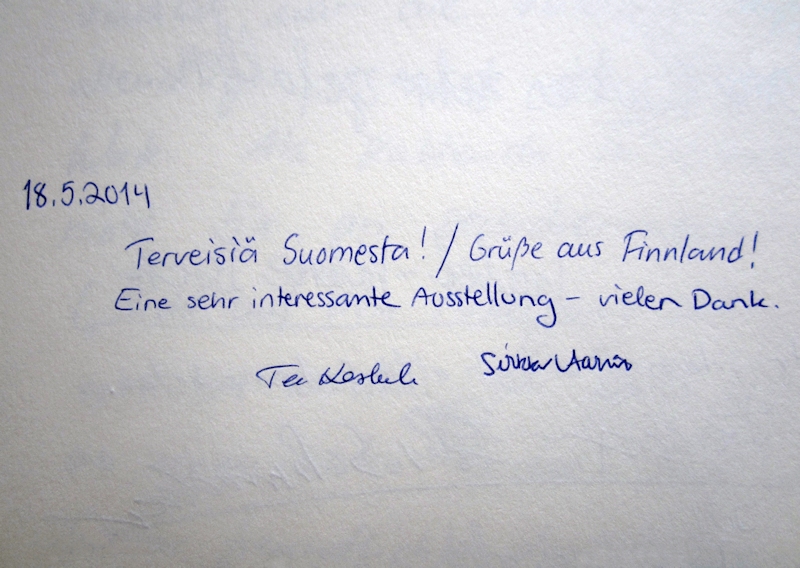 18.5.2014
Terveisiä Suomesta! / Grüße aus Finnland!
Eine sehr interessante Ausstellung – vielen Dank.